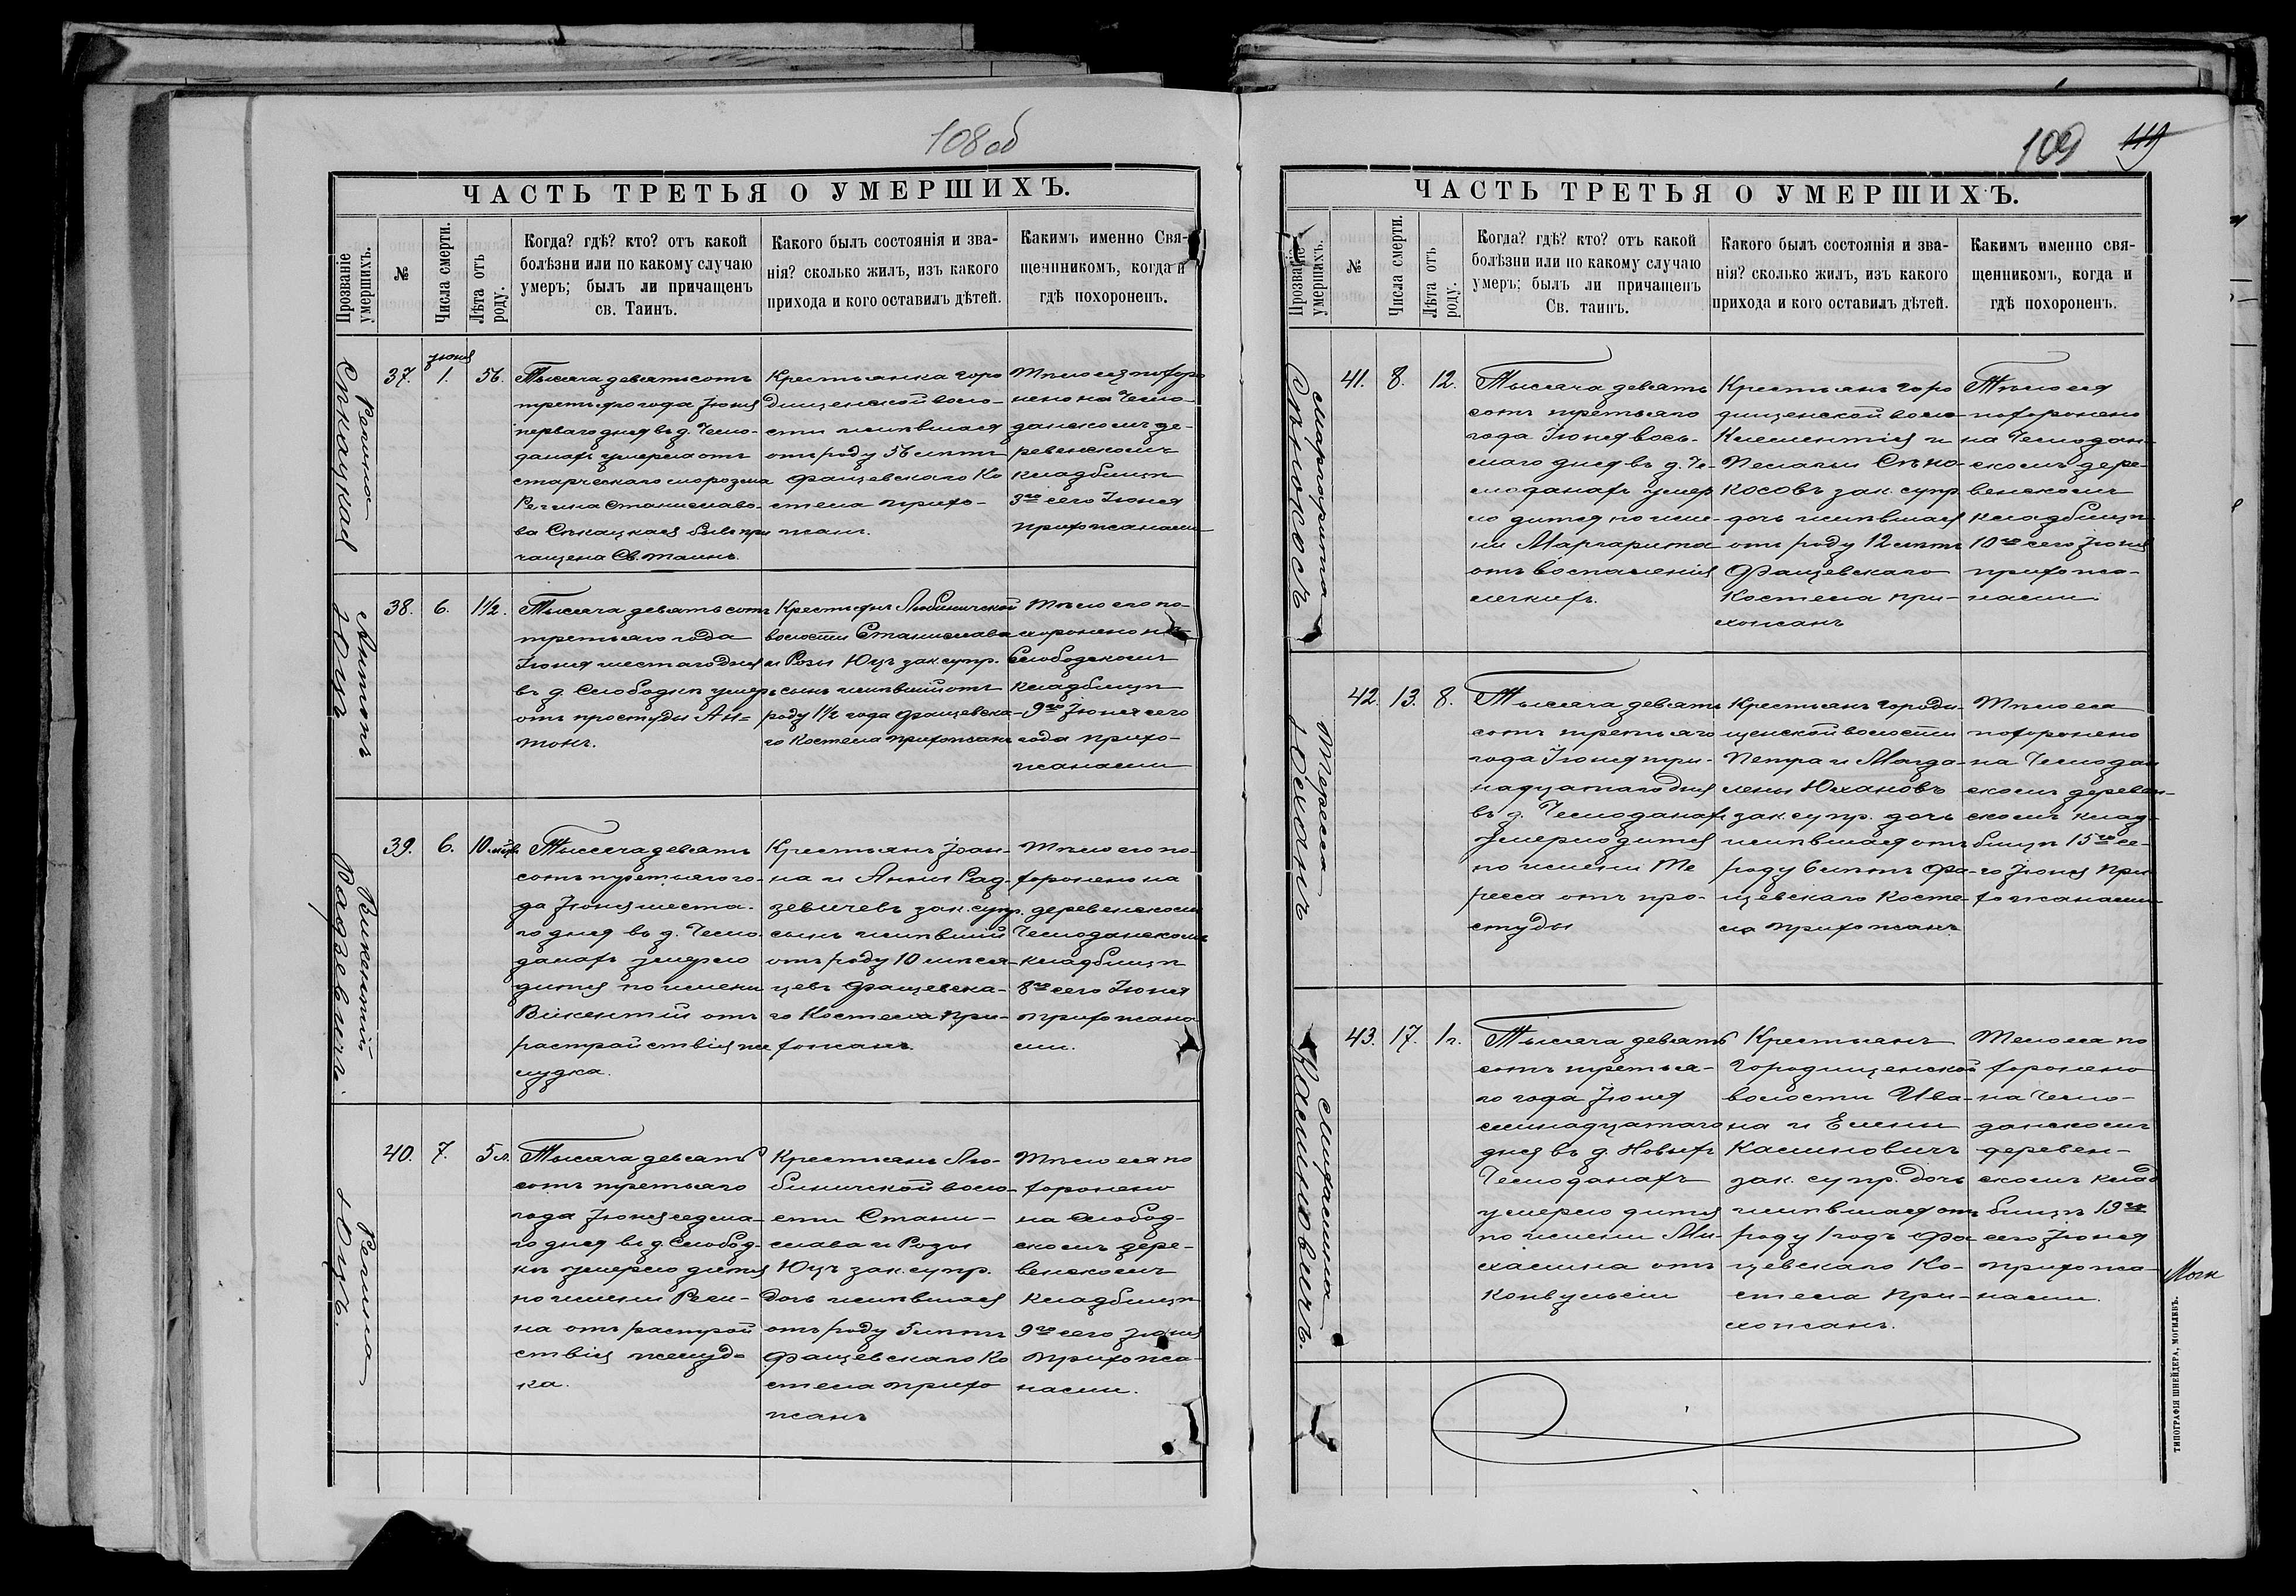 108 об
ЧАСТЬ ТРЕТЬЯ О УМЕРШИХЪ.
Прозваніе умершихъ.
№
Числа смерти.
Лѣта отъ роду.
Когда? гдѣ? кто? отъ какой
болѣзни или по какому случаю
умеръ; былъ ли причащенъ
св. Таинъ.
Какого былъ состоянія и зва-
нія? сколько жилъ, изъ какого
прихода и кого оставилъ дѣтей.
Какимъ именно Свя-
щенникомъ, когда и
гдѣ похороненъ.
Регина
37.
Іюня
1.
56.
Тысяча девятьсотъ
третьяго года Іюня
перваго дня въ д. Чемо-
данахъ умерла отъ
старческаго
Регина Станиславо-
ва Сѣкацкая была при
чащена Св. таинъ.
Крестьянка горо
дищенской воло-
сти жившая
отъ роду 56 лѣтъ
Фащевскаго Ко
стела прихо-
жан.
Тѣло ея похоро
нено на Чемо-
данскомъ де-
ревенскомъ
кладбищѣ
3го сего Іюня
прихожанами
Антонъ
Юцъ
38.
6.
1½.
Тысяча девятьсотъ
третьяго года
Іюня шестаго дня
въ д. Слободкѣ умеръ
отъ простуды Ан=
тонъ.
Крестьянъ Любиничской
волости Станислава
и Розы Юцъ зак. супр.
сынъ жившій отъ
роду 1½ года Фащевска-
го Костела прихожанъ
Тѣло его по-
хоронено на
Слободскомъ
кладбищѣ
9го Іюня сего
года прихо-
жанами
Викентій
Радзевичъ.
39.
6.
10 мѣс.
Тысяча девять
сотъ третьяго го-
да Іюня шеста-
го дня въ д. Чемо-
данахъ умерло
дитя по имени
Викентій отъ
растройствія же
лудка.
Крестьянъ Іоан-
на и Анны Рад-
зевичевъ зак. супр.
сынъ жившій
отъ роду 10 мѣся-
цевъ Фащевска-
го Костела при-
хожанъ.
Тѣло его по-
хоронено на
деревенском
Чемоданскомъ
кладбищѣ
8го сего Іюня
прихожана
ми.
Регина
Юцъ.
40.
7.
5 л.
Тысяча девять
сотъ третьяго
года Іюня седьма-
го дня въ д. Слобод-
кѣ умерло дитя
по имени Реги-
на отъ растрой
ствія желуд-
ка.
Крестьянъ Лю-
биничской воло-
сти Стани-
слава и Розы
Юцъ зак. супр.
дочь жившая
отъ роду 5 лѣтъ
Фащевскаго Ко
стела прихо
жанъ
Тѣло ея по
хоронено
на Слобод-
скомъ дере-
венскомъ
кладбищѣ
9го сего Іюня
прихожа-
нами.
109
ЧАСТЬ ТРЕТЬЯ О УМЕРШИХЪ.
Прозваніе умершихъ.
№
Числа смерти.
Лѣта отъ роду.
Когда? гдѣ? кто? отъ какой
болѣзни или по какому случаю
умеръ; былъ ли причащенъ
Св. таинъ.
Какого былъ состоянія и зва-
нія? сколько жилъ, изъ какого
прихода и кого оставилъ дѣтей.
Какимъ именно свя-
щенникомъ, когда и
гдѣ похороненъ.
Маргарита
41.
8.
12.
Тысяча девять
сотъ третьяго
года Іюня вось-
маго дня въ д. Че-
моданахъ умер
ло дитя по име-
ни Маргарита
отъ воспаленія
легкихъ.
Крестьянъ горо
дищенской воло
Климентія и
Пелагіи Сѣно-
косовъ зак. супр
дочь жившая
отъ роду 12 лѣтъ
Фащевскаго
Костела при-
хожанъ
Тѣло ея
похоронено
на Чемодан-
скомъ дере-
венскомъ
кладбищѣ
10го сего Іюня
прихожа-
нами
Тересса
Юхано
42.
13.
8.
Тысяча девять
сотъ третьяго
года Іюня три-
надцатаго дня
въ д. Чемоданах
умерло дитя
по имени Те
ресса отъ про-
студы
Крестьянъ городи-
щенской волости
Петра и Магда-
лены Юхановъ
зак. супр. дочь
жившая отъ
роду 6 лѣтъ Фа-
щевскаго Косте-
ла прихожанъ
Тѣло ея
похоронено
на Чемодан
скомъ деревен-
скомъ клад-
бищѣ 15го се-
го Іюня при
хожанами
Михалина
Касиновичъ.
43.
17.
1 г.
Тысяча девять
сотъ третья-
го года Іюня
семнадцатаго
дня въ д. Новыхъ
Чемоданахъ
умерло дитя
по имени Ми-
халина отъ
конвульсіи
Крестьянъ
Городищенской
волости Ива-
на и Елены
Касиновичъ
зак. супр. дочь
жившая отъ
роду 1 годъ Фа-
щевскаго Ко-
стела при-
хожанъ.
Тело ея по
хоронено
на Чемо-
данскомъ
деревен-
скомъ клад
бищѣ 19го
сего Іюня
прихожа-
нами.
ТИПОГРАФІЯ ШНЕЙДЕРА, МОГИЛЕВЪ.